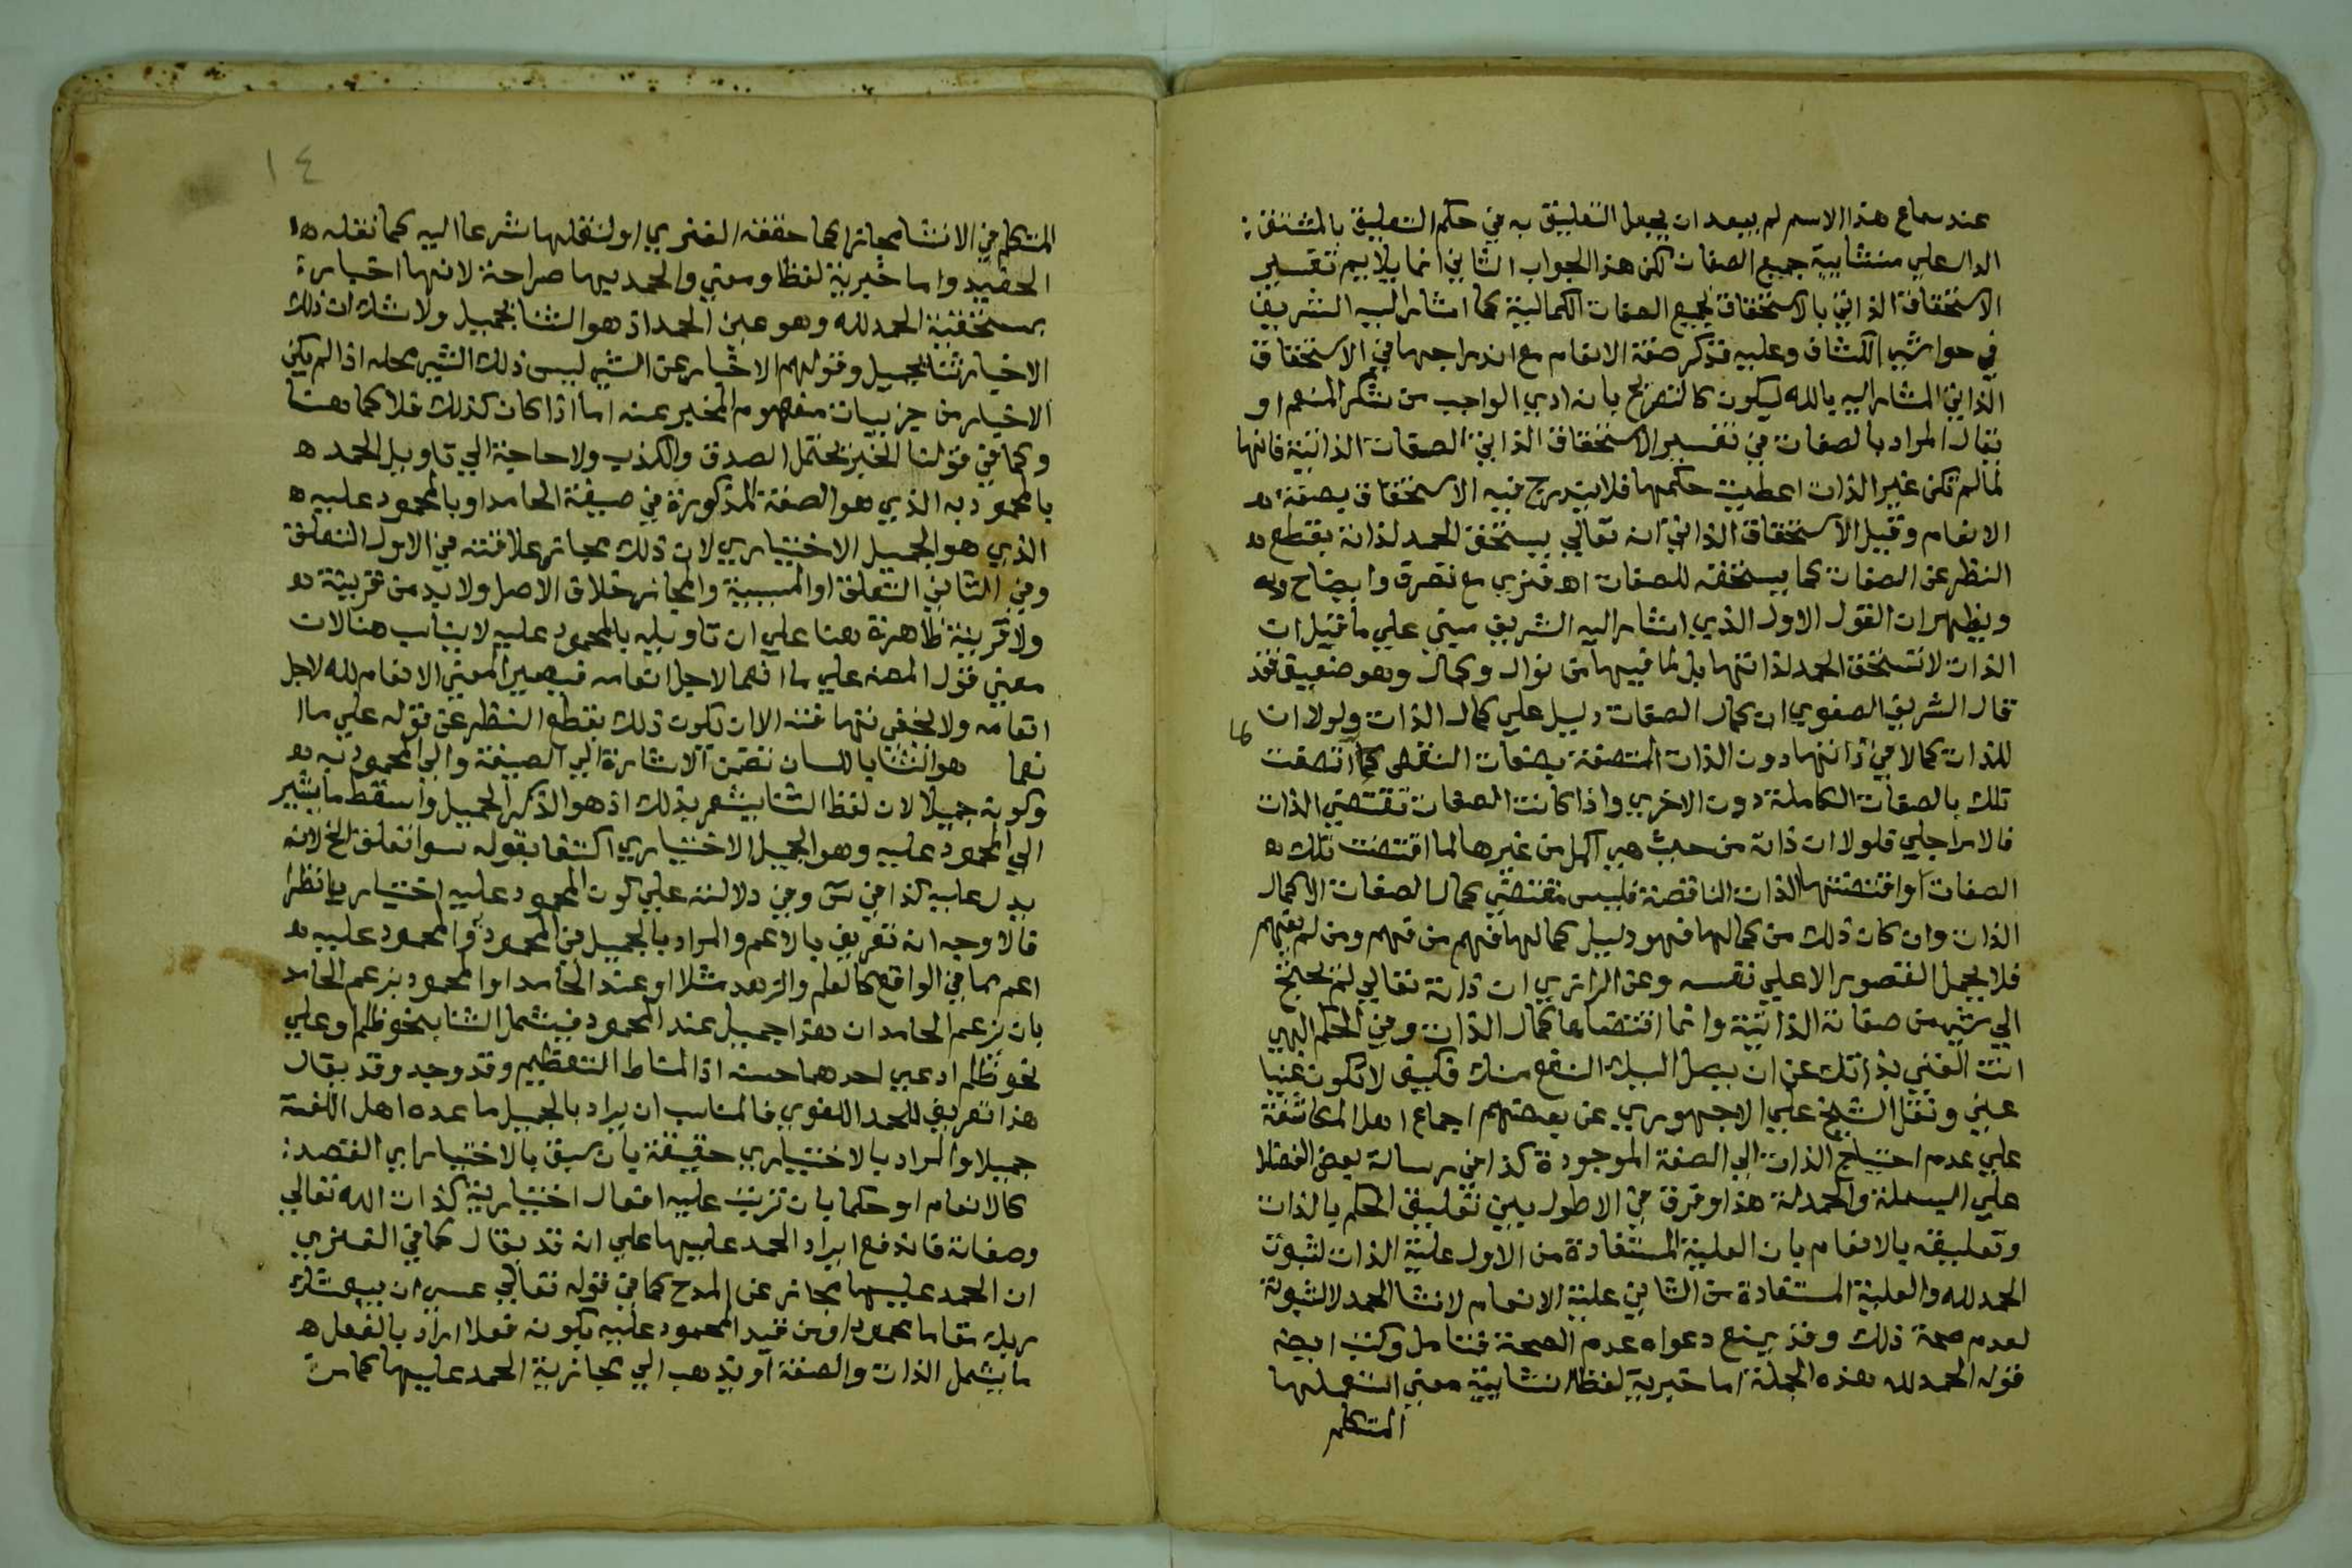 عند سماع هذا الاسم لم يبعد ان يجعل التعليق به في حكم التعليق بالمشتق
الدال على منشايية جميع الصفات لكن هذا الجواب الثاني انما يلايم تفسير
الاستحقاق الذاتي بالاستحقاق لجميع الصفات الكمالية كما اشار اليه الشريف
في حواشي الكشاف وعليه فذكر صفة الانعام مع اندراجها في الاستحقاق
الذاتي المشار اليه بالله ليكون كالتصريح بانه ادي الواجب من شكر المنعم او
يقال المراد بالصفات في تفسير الاستحقاق الذاتي الصفات الذاتية فانها
لما لم تكن غير الذات اعطيت حكمها فلا يندرج فيه الاستحقاق بصفة
الانعام وقيل الاستحقاق الذاتي انه تعالي يستحق الحمد لذاته بقطع
النظر عن الصفات كما يستحقه للصفات اه فنري مع تصرف وايضاح
ويظهر ان القول الاول الذي اشار اليه الشريف مبني علي ما قيل ان
الذات لا تستحق الحمد لذاتها بل لما فيها من نوال وكمال وهو ضعيف فقد
قال الشريف الصفوي ان كمال الصفات دليل علي كمال الذات ولولا ان
للذات كمالا في ذاتها دون الذات المتصفة بصفات النقص لما اتصفت
تلك بالصفات الكاملة دون الاخري واذا كانت الصفات تقتضي الذات
فالامر اجلي فلولا ان ذاته من حيث هي اكمل من غيرها لما اقتضت تلك
الصفات او اقتضتها الذات الناقصة فليس مقتضي كمال الصفات الا كمال
الذات وان كان ذلك من كمالها فهو دليل كمالها فهم من فهم ومن لم يفهم
فلا يحمل القصور الا علي نفسه وعن الرازي ان ذاته تعالي لم يحتج
الي شيء من صفاته الذاتية وانما اقتضاها كمال الذات وفي الحكم الهي
انت الغني بذاتك عن ان يصل اليك النفع منك فكيف لا تكون غنيا
عني ونقل الشيخ علي الاجهوري عن بعضهم اجماع اهل المكاشفة
علي عدم احتياج الذات الي الصفة الموجودة كذا في رسالة بعض الفضلا
علي البسملة والحمدلة هذا وفرق في الاطول بين تعليق الحكم بالذات
وتعليقه بالانعام بان العلية المستفادة من الاول علية الذات لثبوت
الحمد لله والعلية المستفادة من الثاني علية الانعام لانشا الحمد لا لثبوته
لعدم صحة ذلك وقد يمنع دعواه عدم الصحة فتامل وكتب ايضه
قوله الحمد لله هذه الجملة اما خبرية لفظا انشايية معني استعملها
المتكلم
١٤
المتكلم في الانشا مجازا كما حققه الفنري او لنقلها شرعا اليه كما نقله
الحفيد واما خبرية لفظا ومعني والحمد بها صراحة لانها اخبارة
بمستحقية الحمد لله وهو عين الحمد اذ هو الثنا بجميل ولا شك ان ذلك
الاخبار ثنا بجميل وقولهم الاخبار عن الشي ليس ذلك الشي محله اذا لم يكن
الاخبار من جزييات مفهوم المخبر عنه اما اذا كان كذلك فلا كما هنا
وكما في قولنا الخبر يحتمل الصدق والكذب ولا حاجة الي تاويل الحمد
بالمحمود به الذي هو الصفة المذكورة في صيغة الحامد او بالمحمود عليه
الذي هو الجميل الاختياري لان ذلك مجاز علاقته في الاول التعلق
وفي الثاني التعلق او المسببية والمجاز خلاف الاصل ولا بد من قرينة
ولا قرينة ظاهرة هنا علي ان تاويله بالمحمود عليه لا يناسب هنا لان
معني قول المصه علي ما انعما لاجل انعامه فيصير المعني الانعام لله لاجل
انعامه ولا يخفي تهافته الا ان يكون ذلك بقطع النظر عن قوله علي ما ا
نعما هو الثنا باللسان تضمن الاشارة الي الصيغة والي المحمود به
وكونه جميلا لان لفظ الثنا يشعر بذلك اذ هو الذكر الجميل واسقط ما يشير
الي المحمود عليه وهو الجميل الاختياري اكتفا بقوله سوا تعلق الخ لانه
يدل عليه كذا في س وفي دلالته علي كون المحمود عليه اختياريا نظر
فالاوجه انه تعريف بالاعم والمراد بالجميل في المحمود به والمحمود عليه
اعم مما في الواقع كالعلم والزهد مثلا او عند الحامد او المحمود بزعم الحامد
بان يزعم الحامد ان هذا جميل عند المحمود فيشمل الثنا بنحو ظلم وعلي
نحو ظلم ادعي احدهما حسنه اذ المناط التعظيم وقد وجد وقد يقال
هذا تعريف للحمد اللغوي فالمناسب ان يراد بالجميل ما عده اهل اللغة
جميلا والمراد بالاختياري حقيقة بان سبق بالاختيار اي القصد
كالانعام او حكما بان ترتب عليه افعال اختيارية كذات الله تعالي
وصفاته فاندفع ايراد الحمد عليها علي انه قد يقال كما في الفنري
ان الحمد عليها مجاز عن المدح كما في قوله تعالي عسي ان يبعثك
ربك مقاما محمودا ومن قيد المحمود عليه بكونه فعلا اراد بالفعل
ما يشمل الذات والصفة او يذهب الي مجازية الحمد عليها كما مر